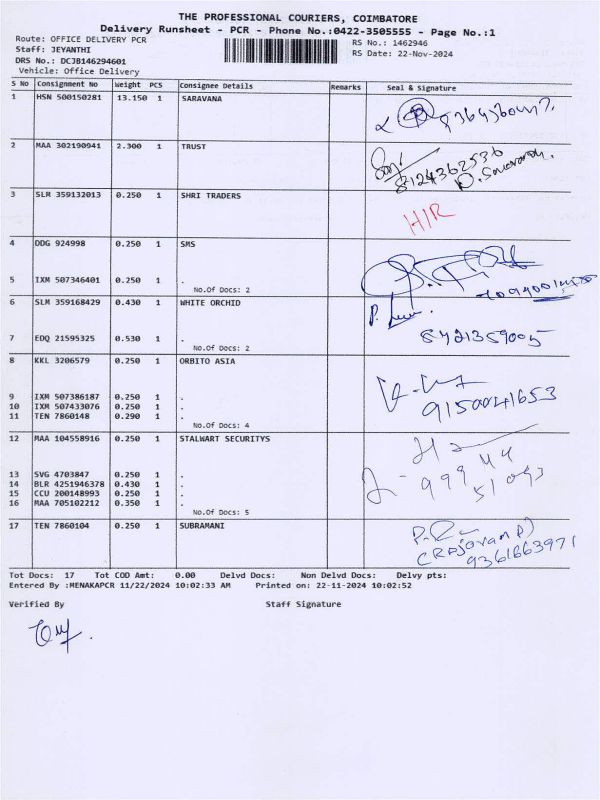 THE PROFESSIONAL COURIERS, COIMBATORE
Delivery Runsheet - PCR - Phone No.:0422-3505555 - Page No.:1
Route: OFFICE DELIVERY PCR RS No.: 1462946
Staff: JEYANTHI RS Date: 22-Nov-2024
DRS No.: DCJB146294601
Vehicle: Office Delivery
S No Consignment No Weight PCS Consignee Details Remarks Seal & Signature
1 HSN 500150281 13.150 1 SARAVANA
2 MAA 302190941 2.300 1 TRUST
8124362536
3 SLR 359132013 0.250 1 SHRI TRADERS
H/R
4 DDG 924998 0.250 1 SMS
5 IXM 507346401 0.250 1 .
No.Of Docs: 2
6 SLM 359168429 0.430 1 WHITE ORCHID
7 EDQ 21595325 0.530 1 .
No.Of Docs: 2
8 KKL 3206579 0.250 1 ORBITO ASIA
9 IXM 507386187 0.250 1 .
10 IXM 507433076 0.250 1 .
11 TEN 7860148 0.290 1 .
9150041653
No.Of Docs: 4
12 MAA 104558916 0.250 1 STALWART SECURITYS
13 SVG 4703847 0.250 1 .
14 BLR 4251946378 0.430 1 .
15 CCU 200148993 0.250 1 .
16 MAA 705102212 0.350 1 .
No.Of Docs: 5
17 TEN 7860104 0.250 1 SUBRAMANI
9361663971
Tot Docs: 17 Tot COD Amt: 0.00 Delvd Docs: Non Delvd Docs: Delvy pts:
Entered By :MENAKAPCR 11/22/2024 10:02:33 AM Printed on: 22-11-2024 10:02:52
Verified By Staff Signature